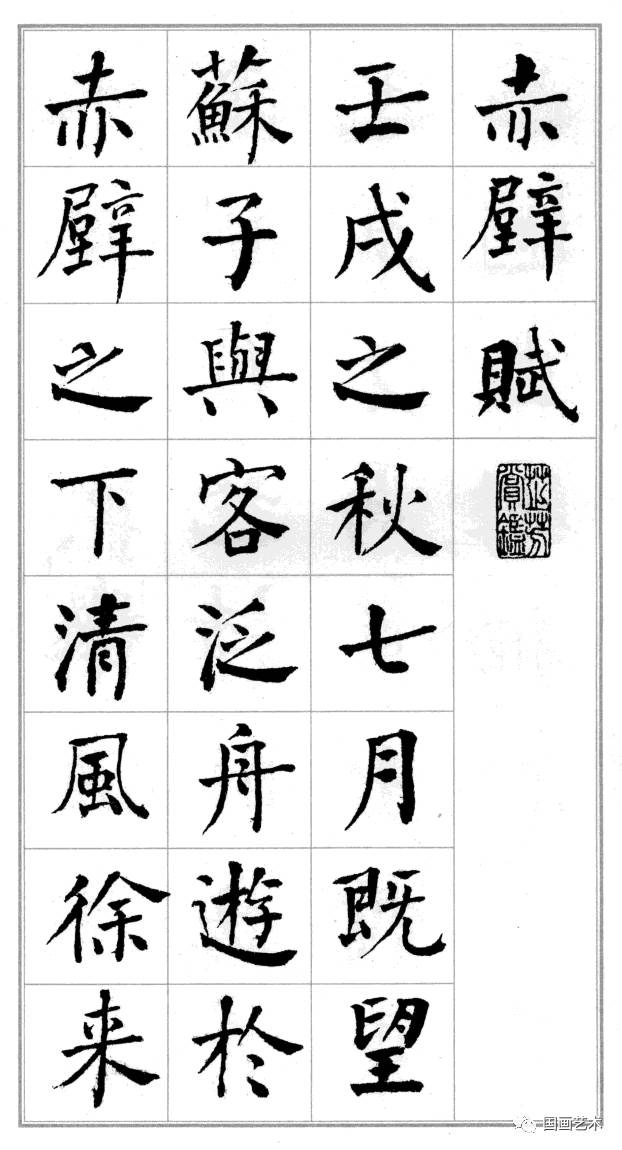 赤壁賦
賞鑑
壬戌之秋七月既望
蘇子與客泛舟遊於
赤壁之下清風徐来
国画艺术